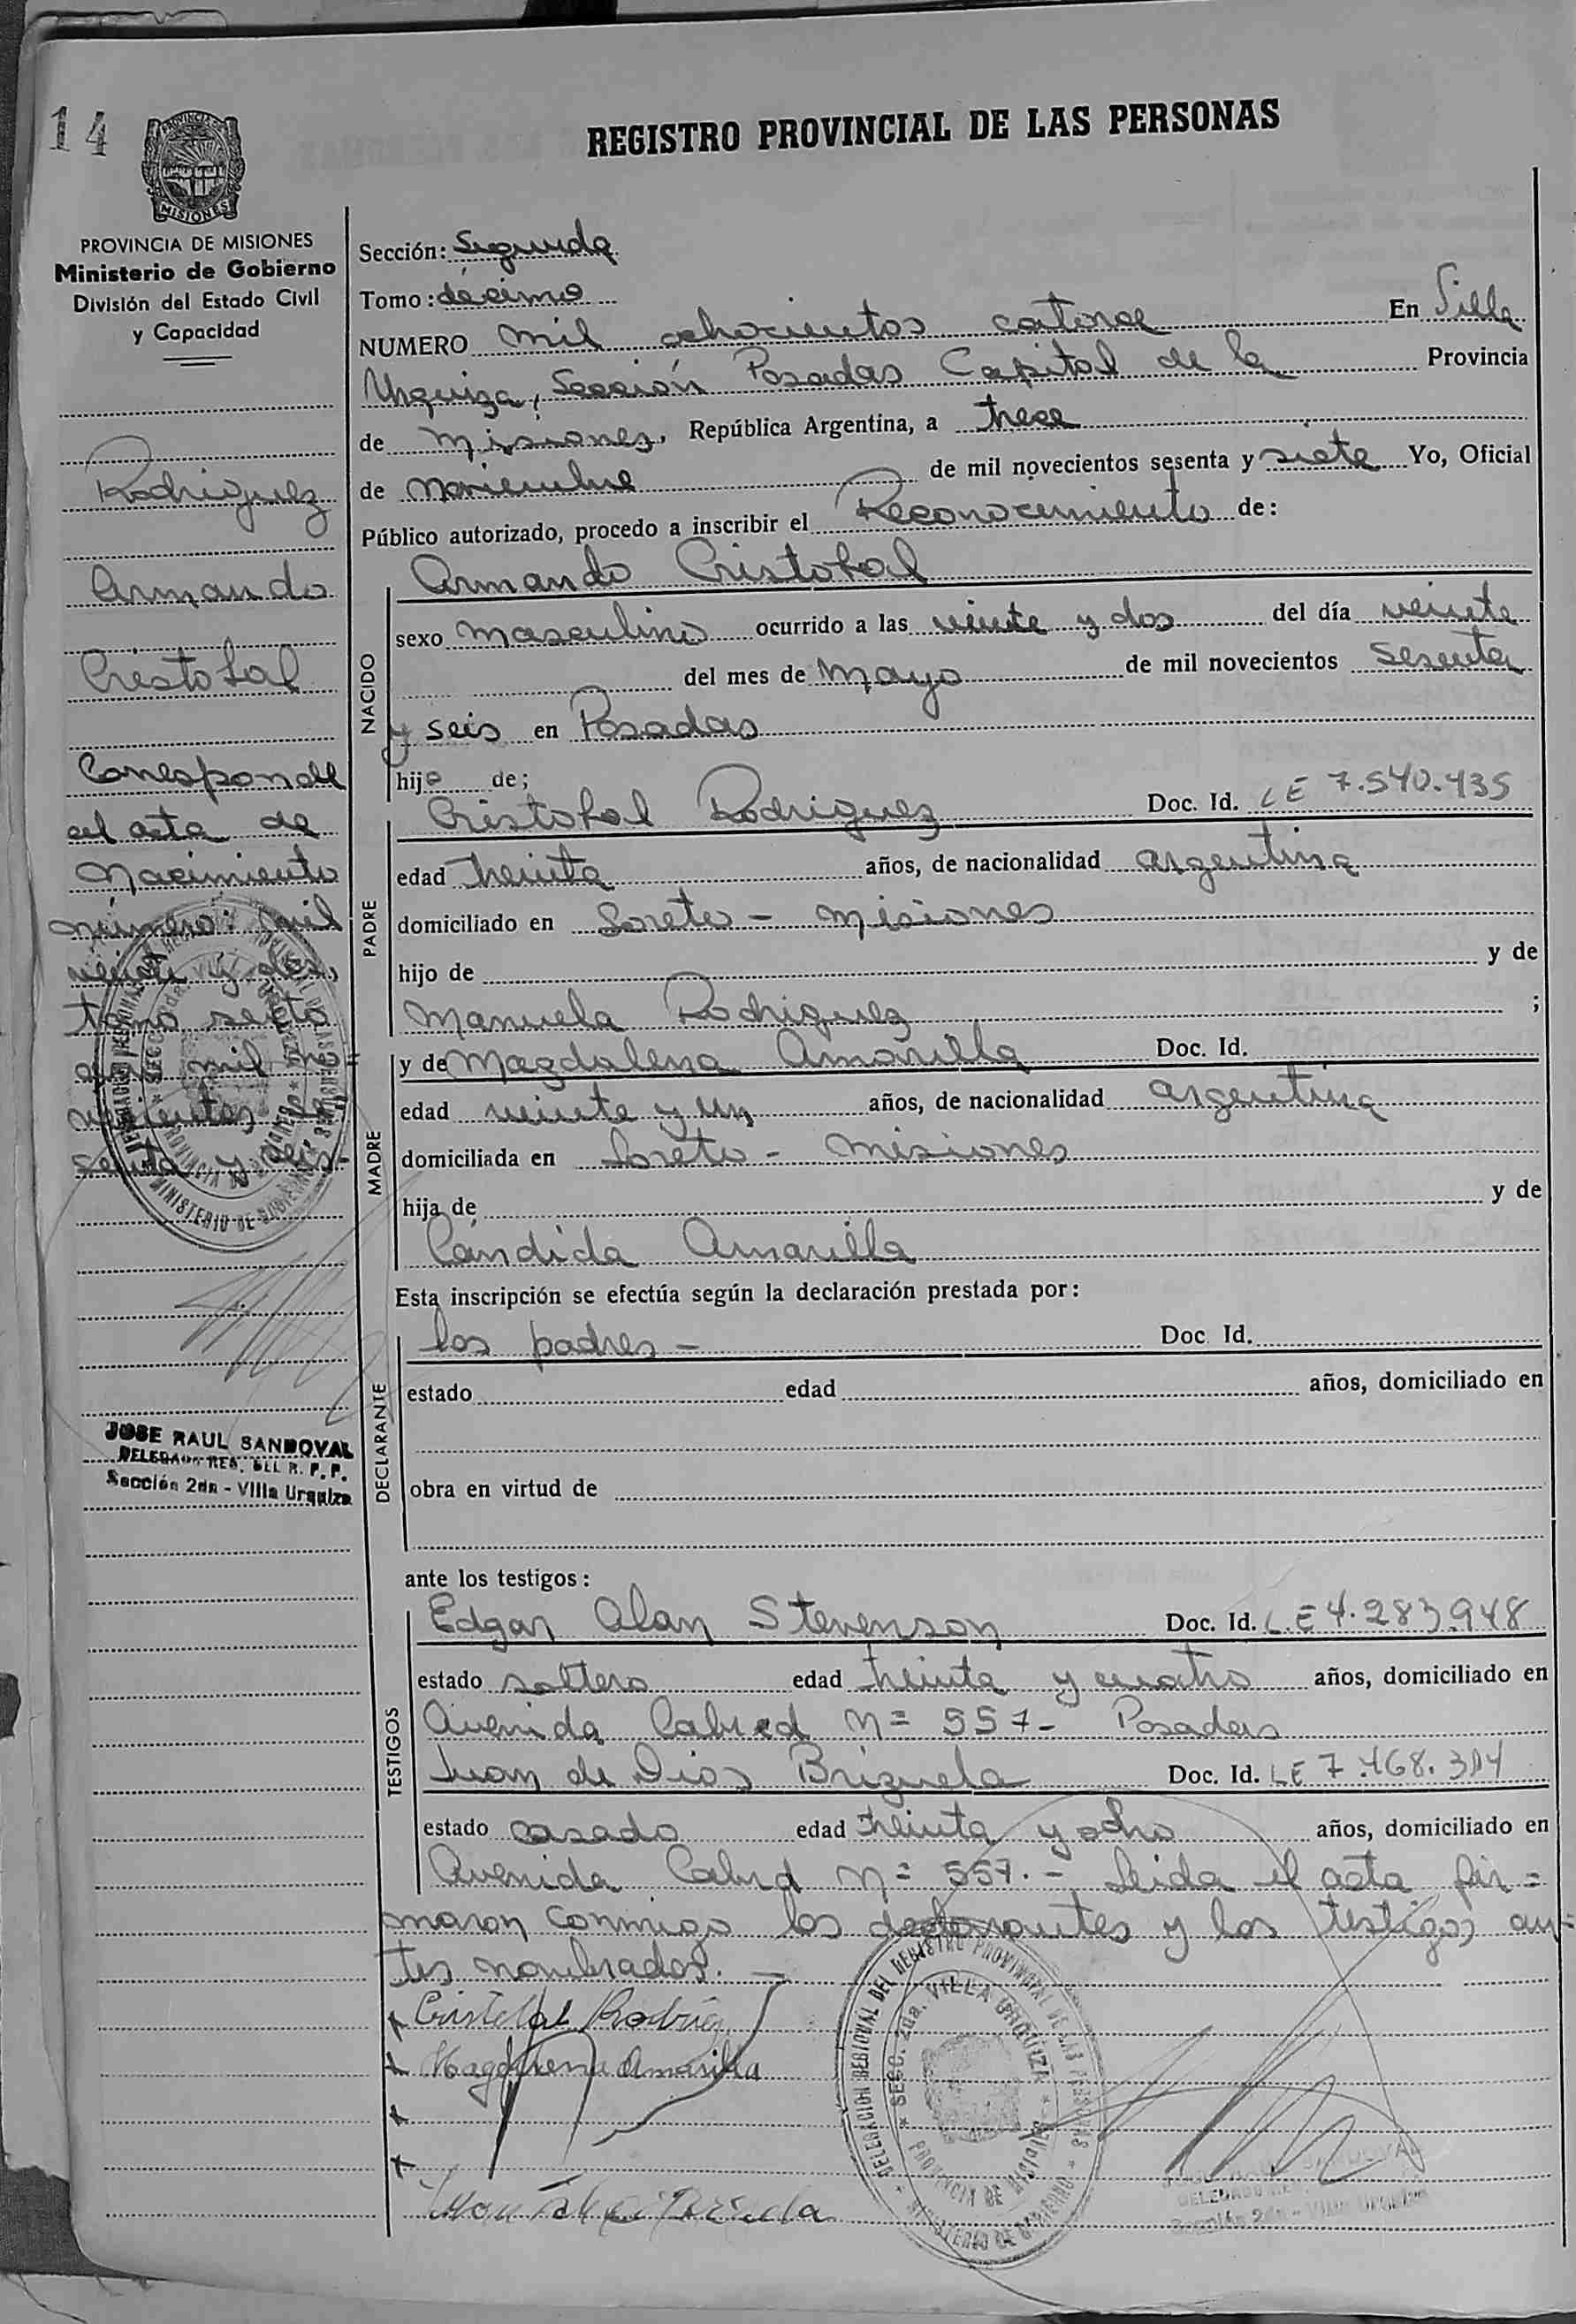 14
PROVINCIA DE MISIONES
Ministerio de Gobierno
División del Estado Civil
y Capacidad
Rodriguez
Armando
Cristobal
Corresponde
al acta de
Nacimiento
número: mil
veinte y dos,
tomo sexto
año mil no=
vecientos se
senta y seis.-
JOSE RAUL SANDOVAL
DELEGADO REG. DEL R. P. P.
Sección 2da - Villa Urquiza
REGISTRO PROVINCIAL DE LAS PERSONAS
Sección: Segunda
Tomo: décimo
NUMERO mil ochocientos catorce En Villa
Urquiza, Sección Posadas Capital de la Provincia
de Misiones, República Argentina, a trece
de noviembre de mil novecientos sesenta y siete Yo, Oficial
Público autorizado, procedo a inscribir el Reconocimiento de:
NACIDO
Armando Cristobal
sexo masculino ocurrido a las veinte y dos del día veinte
del mes de Mayo de mil novecientos sesenta
y seis en Posadas
hijo de;
PADRE
Cristobal Rodriguez Doc. Id. LE 7.540.435
edad treinta años, de nacionalidad argentina
domiciliado en Loreto - Misiones
hijo de y de
Manuela Rodriguez ;
MADRE
y de Magdalena Amarilla Doc. Id.
edad veinte y un años, de nacionalidad argentina
domiciliada en Loreto - Misiones
hija de y de
Cándida Amarilla
Esta inscripción se efectúa según la declaración prestada por:
DECLARANTE
los padres - Doc. Id.
estado edad años, domiciliado en
obra en virtud de
ante los testigos:
TESTIGOS
Edgar Alan Stevenson Doc. Id. L.E 4.283.948
estado soltero edad treinta y cuatro años, domiciliado en
Avenida Cabred Nº 557- Posadas
Juan de Dios Brizuela Doc. Id. LE 7.468.314
estado casado edad treinta y ocho años, domiciliado en
Avenida Cabred Nº 557.- Leida el acta fir=
maron conmigo los declarantes y los testigos an=
tes nombrados. -
Cristobal Rodriguez
Magdalena Amarilla
DELEGACION REGIONAL DEL REGISTRO PROVINCIAL DE LAS PERSONAS
SECC. 2da. VILLA URQUIZA
PROVINCIA DE MISIONES
MINISTERIO DE GOBIERNO